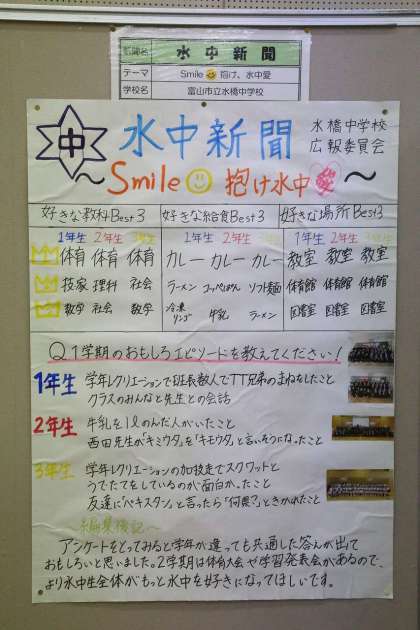 新聞名 水中新聞
テーマ Smile 抱け、水中愛
学校名 富山市立水橋中学校
中 水中新聞 水橋中学校
広報委員会
～Smile 抱け水中愛～
好きな教科Best3 好きな給食Best3 好きな場所Best3
1年生 2年生 3年生 1年生 2年生 3年生 1年生 2年生 3年生
体育 体育 体育 カレー カレー カレー 教室 教室 教室
技家 理科 社会 ラーメン コッペぱん ソフト麺 体育館 体育館 体育館
数学 社会 数学 冷凍リンゴ 牛乳 ラーメン 図書室 図書室 図書室
Q1学期のおもしろエピソードを教えてください!
1年生 学年レクリエーションで班長数人でTT兄弟のまねをしたこと
クラスのみんなと先生との会話
2年生 牛乳を1ℓのんだ人がいたこと
西田先生が「キミウタ」を「キモウタ」と言いそうになったこと
3年生 学年レクリエーションの加技走でスクワットと
うでたてをしているのが面白かったこと
友達に「ペキスタン」と言ったら「何県?」ときかれたこと
～編集後記～
アンケートをとってみると学年が違っても共通した答えが出て
おもしろいと思いました。2学期は体育大会や学習発表会があるので、
より水中生全体がもっと水中を好きになってほしいです。